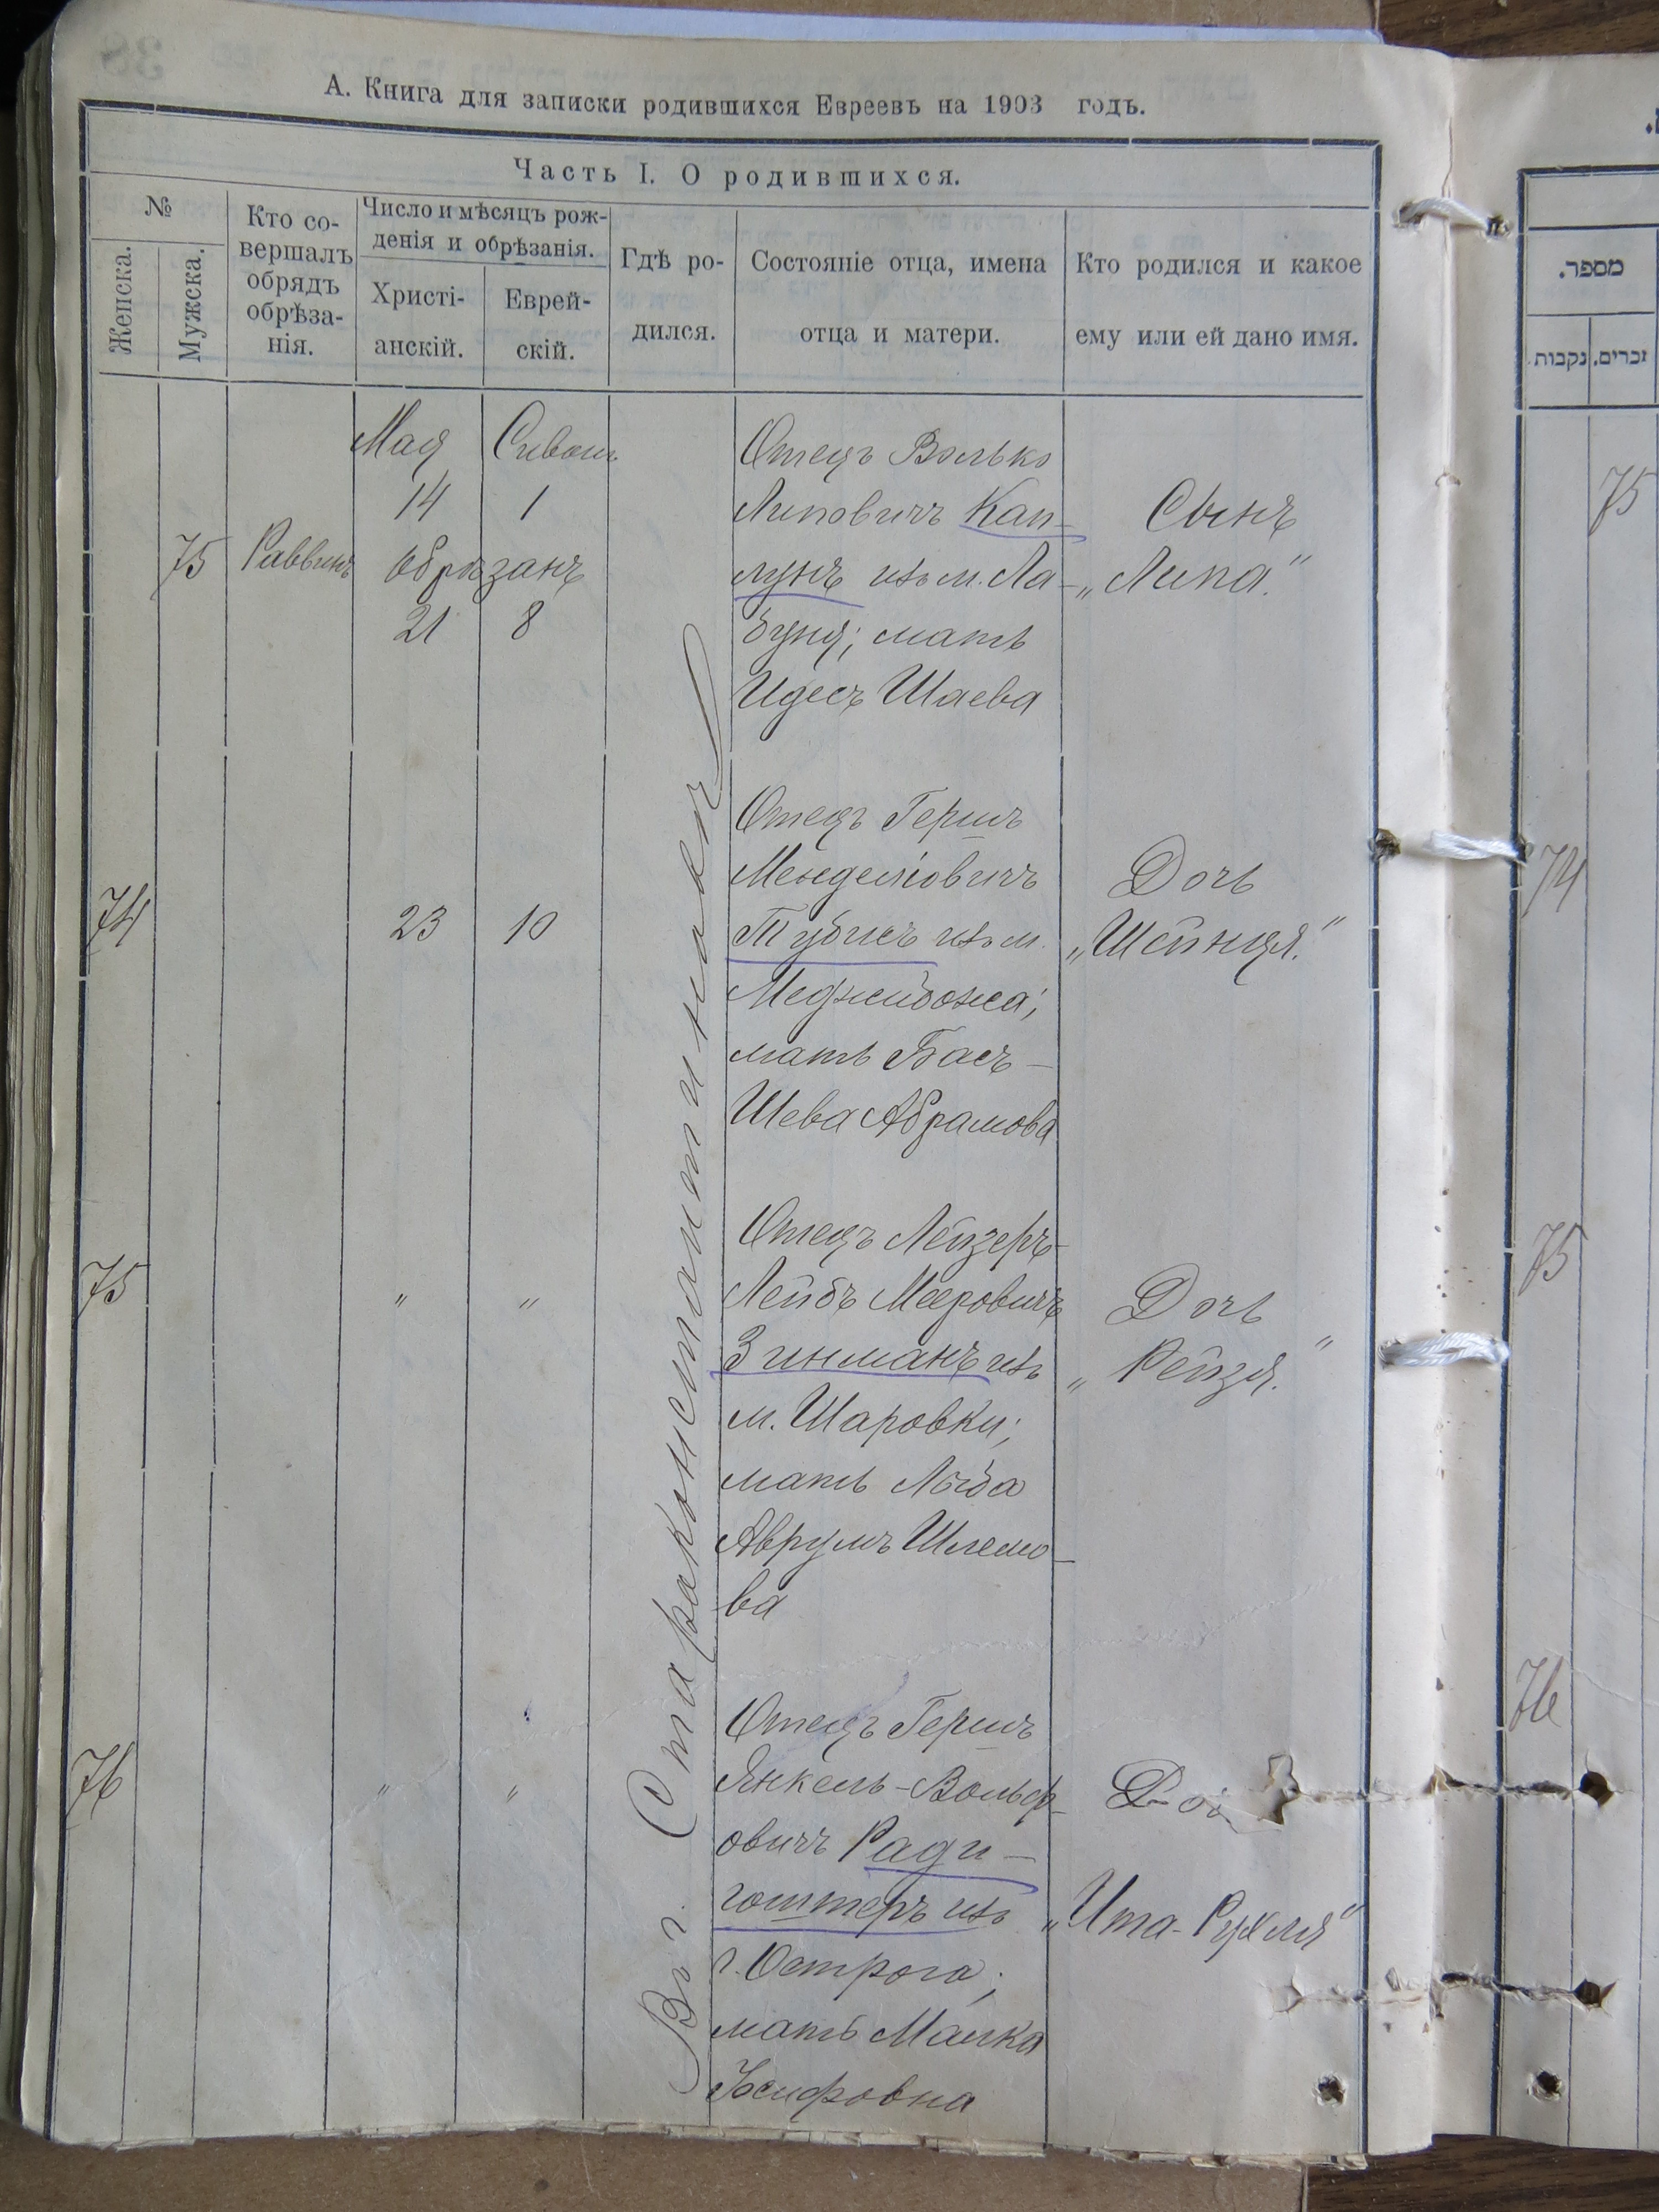 А. Книга для записки родившихся Евреевъ на 1903 годъ.
Часть I. О родившихся.
№
Женска.
Мужска.
Кто со-
вершалъ
обрядъ
обрѣза-
нія.
Число и мѣсяцъ рож-
денія и обрѣзанія.
Христі-
анскій.
Еврей-
скій.
Гдѣ ро-
дился.
Состояніе отца, имена
отца и матери.
Кто родился и какое
ему или ей дано имя.
75
Раввинъ
Мая Сиванъ
14 1
Обрѣзанъ
21 8
Отецъ Волько
Липовичъ Кап-
лунъ изъ м. Ла-
буня; мать
Идесъ Шаева
Сынъ
„Липа."
74
23 10
Отецъ Гершъ
Менделіовичъ
Тубисъ изъ м.
Меджибожа;
мать Бась-
Шева Абрамова
Дочь
„Шейндя."
75
" "
Отецъ Лейзеръ-
Лейбъ Мееровичъ
Зинманъ изъ
м. Шаровки;
мать Люба
Аврумъ Шлемо-
ва
Дочь
„Рейзя."
76
" "
Отецъ Гершъ
Янкель-Вольф-
овичъ Ради-
гоштеръ изъ
г. Острога;
мать Малка
Іосифовна
„Ита-Рухля"
Въ г. Старконстантиновѣ
מספר.
נקבות.
זכרים.
75
74
75
76